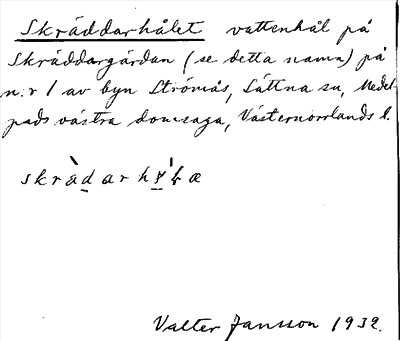 Skräddarhålet vattenhål på
Skräddargårdan (se detta namn) på
n:r 1 av byn Strömås, Sättna sn, Medel
pads västra domsaga, Västernorrlands l.
Valter Jansson 1932.